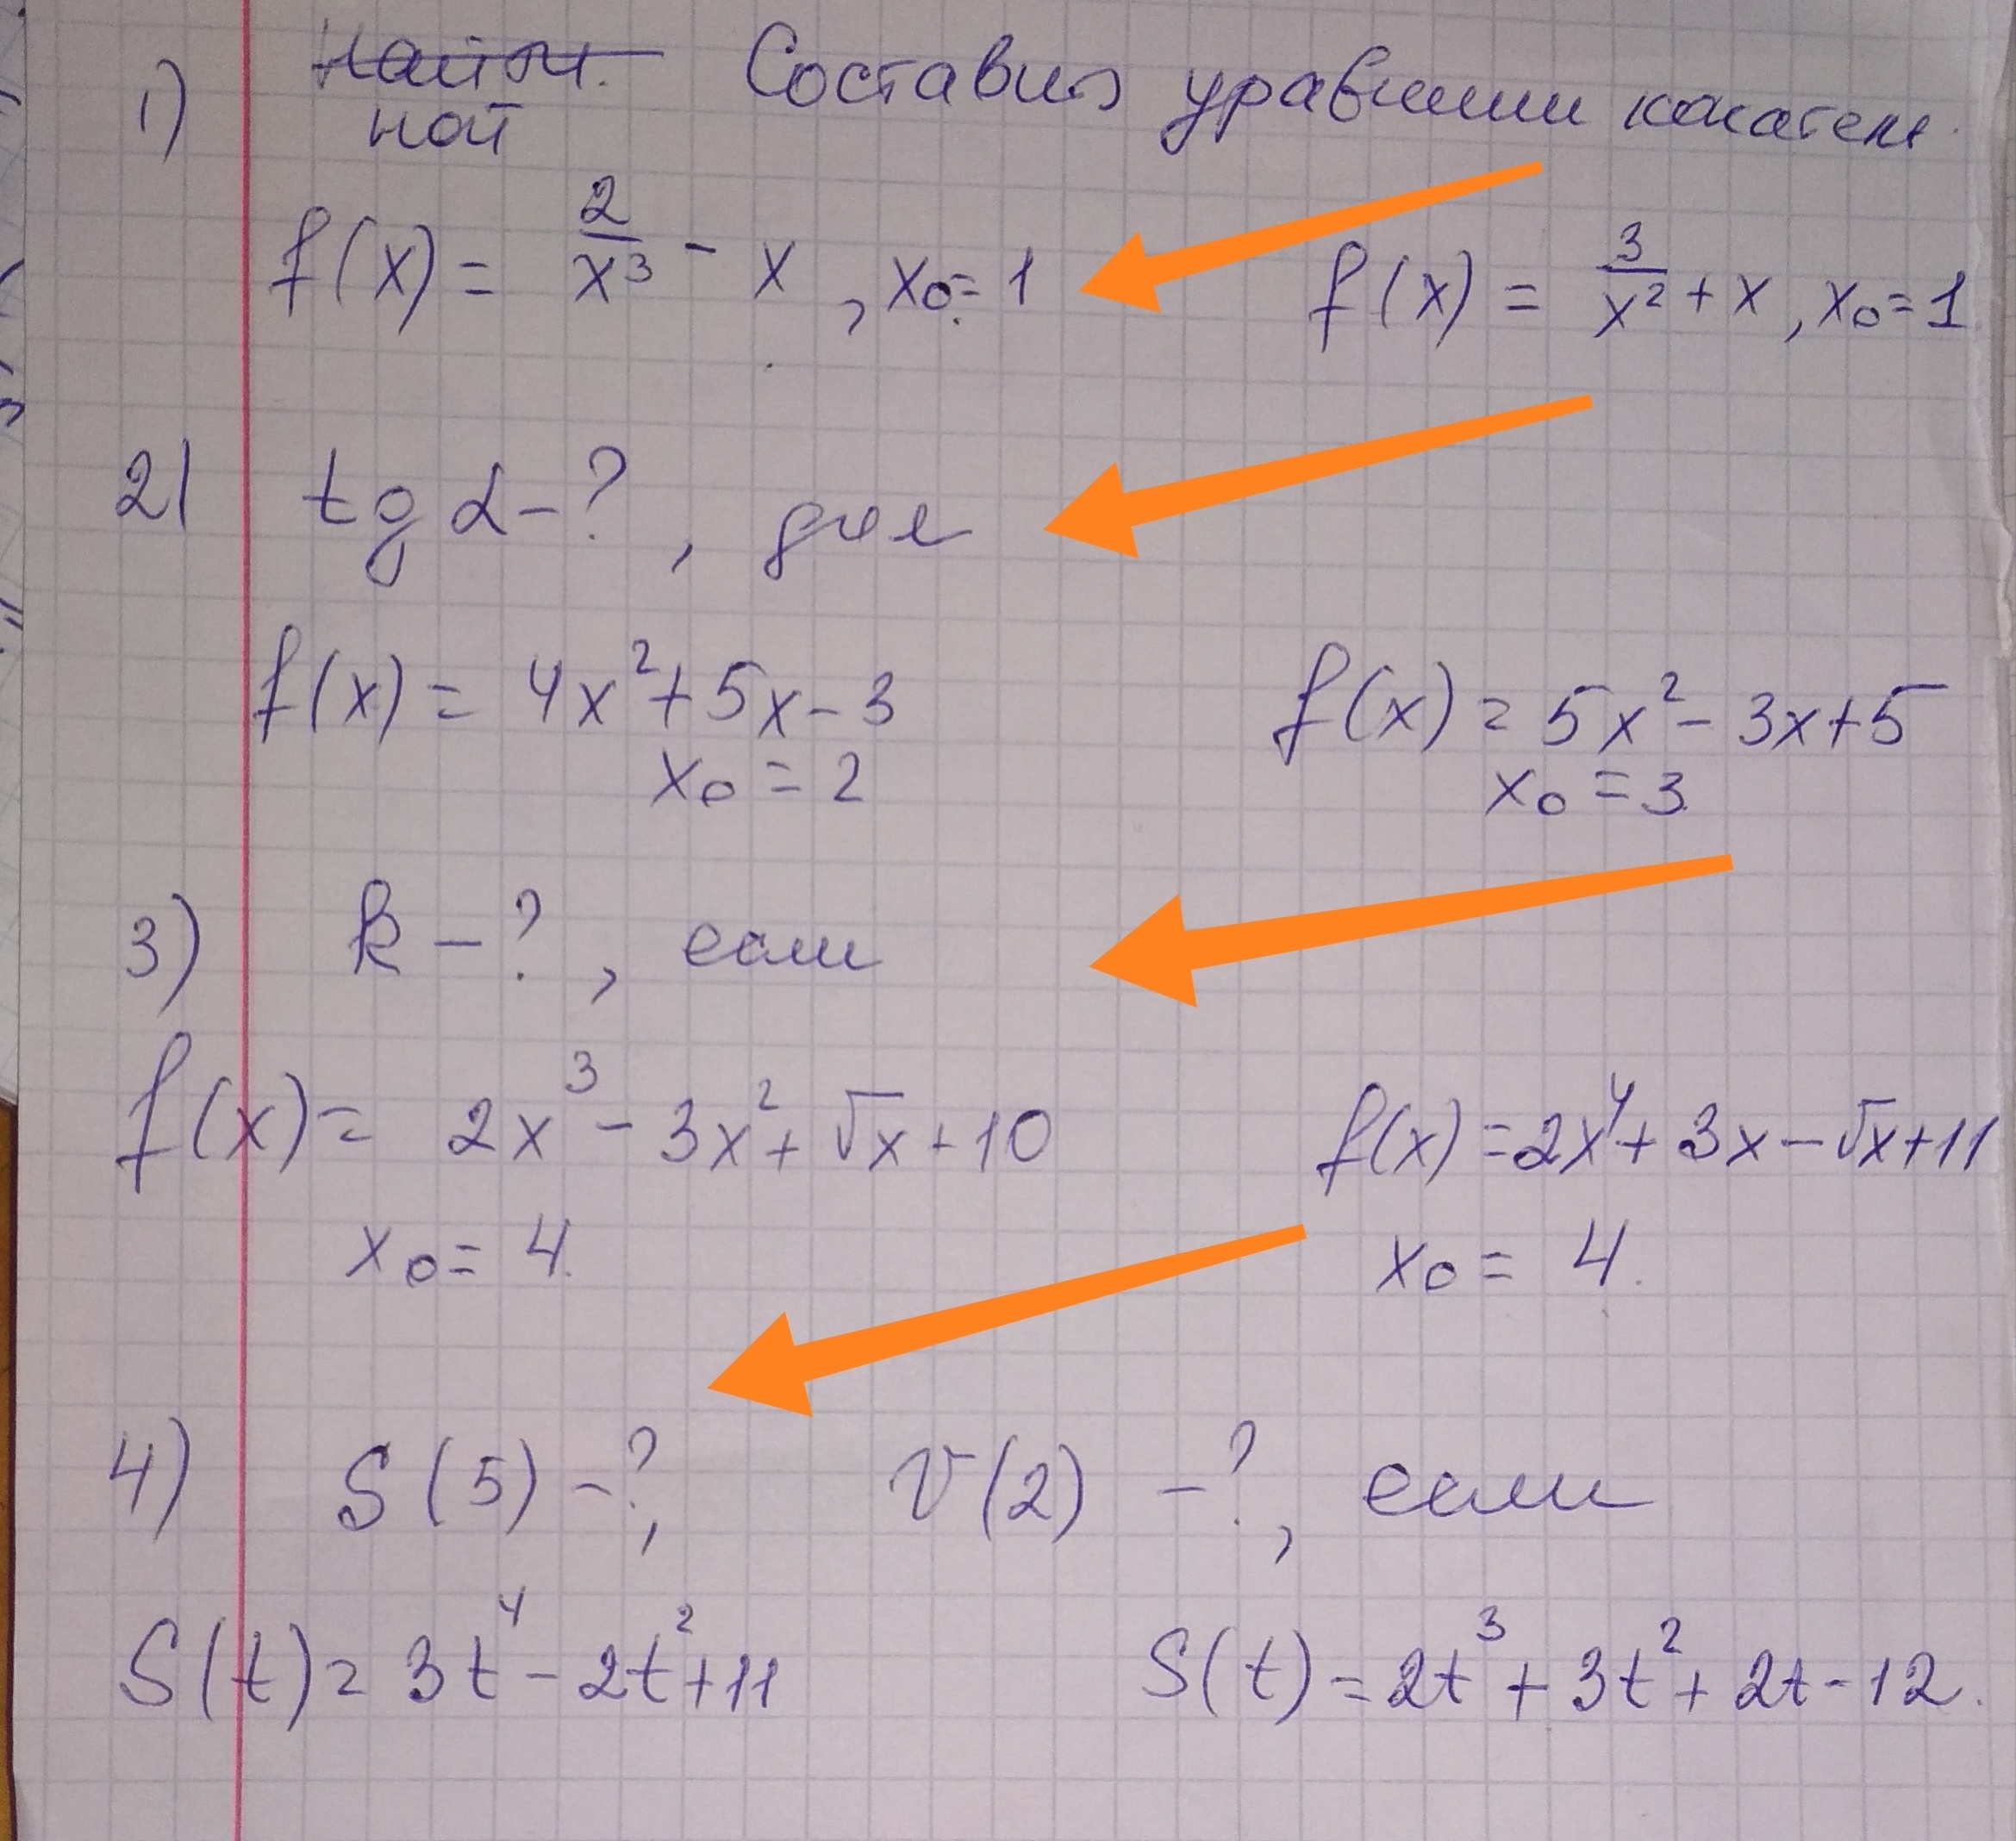 1) Найти. Составить уравнении касатель
ной
f(x) = 2/x³ - x, x₀ = 1 f(x) = 3/x² + x, x₀ = 1
2) tg α - ?, для
f(x) = 4x² + 5x - 3 f(x) = 5x² - 3x + 5
x₀ = 2 x₀ = 3
3) k - ?, если
f(x) = 2x³ - 3x² + √x + 10 f(x) = 2x⁴ + 3x - √x + 11
x₀ = 4. x₀ = 4.
4) S(5) - ?, v(2) - ?, если
S(t) = 3t⁴ - 2t² + 11 S(t) = 2t³ + 3t² + 2t - 12.